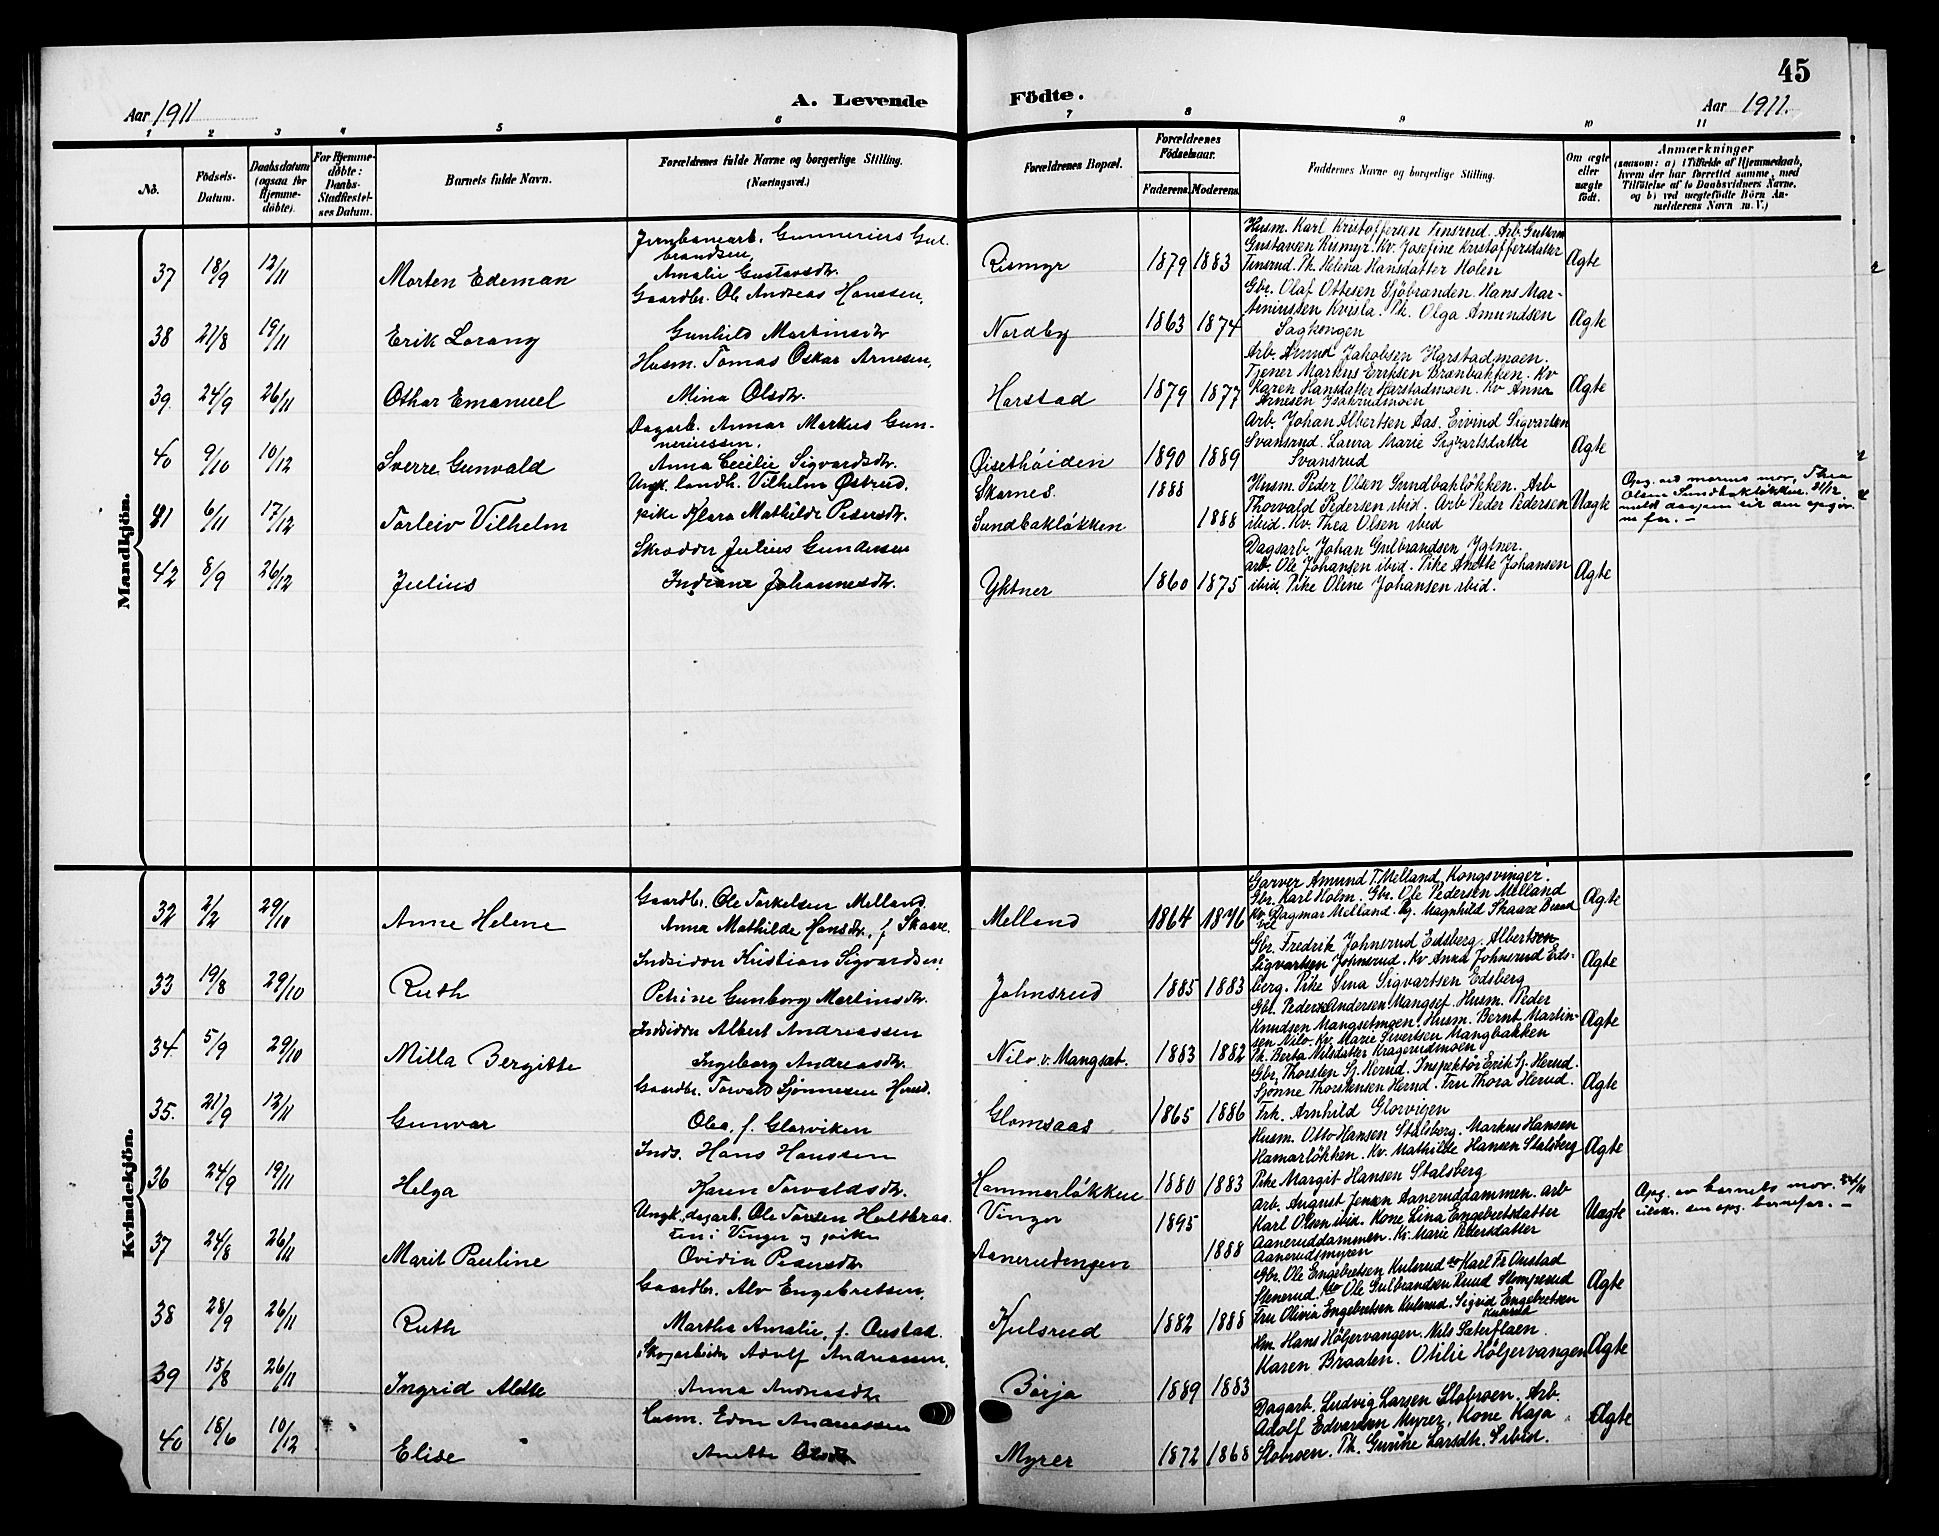 45
Aar 1911
A. Levende Födte.
Aar 1911.
1 2 3 4 5 6 7 8 9 10 11
No.
Födsels-Datum.
Daabsdatum (ogsaa for Hjemme-döbte).
For Hjemme-döbte: Daabs-Stadfæstel-ses Datum.
Barnets fulde Navn.
Forældrenes fulde Navne og borgerlige Stilling.
(Næringsvei.)
Forældrenes Bopæl.
Forældrenes Födselsaar.
Faderens. Moderens.
Faddernes Navne og borgerlige Stilling.
Om ægte eller uægte födt.
Anmærkninger
(saasom: a) i Tilfælde af Hjemmedaab,
hvem der har forrettet samme, med
Tilföielse af to Daabsvidners Navne,
og b) ved uægtefödte Börn An-
melderens Navn m. V.)
Mandkjön.
37 18/9 12/11 Morten Edeman
Jernbanearb. Gunnerius Gul-
brandsen,
Amalie Gustavsdtr.
Rismyr 1879 1883
Husm. Karl Kristoffersen Tinsrud. Arb. Guttorm
Gustavsen Rismyr. Kv. Josefine Kristoffersdatter
Tinsrud. Pk. Helena Hansdatter Holen
Ægte
38 21/8 19/11 Erik Lorang
Gaardbr. Ole Andreas Hanssen,
Gunhild Martinsdtr
Nordby 1863 1874
Gbr. Olaf Ottesen Sjöbranden. Hans Mar-
tiniussen Kvisla. Pk. Olga Amundsen
Sagkongen
Ægte
39. 24/9 26/11 Othar Emanuel
Husm. Tomas Oskar Arnesen,
Mina Olsdtr.
Harstad 1879 1877
Arb. Amund Jakobsen Harstadmoen.
Tjener Markus Eriksen Brænbakken. Kv
Karen Hansdatter Harstadmoen. Kv Anna
Arnesen
Ægte
40 9/10 10/12 Sverre Gunvald
Dagarb. Annar Markus Gun-
neriussen,
Anna Cecilie Sigvardsdtr.
Øisethöiden 1890 1889
Arb. Johan Albertsen Aas. Eivind Sigvartsen
Svansrud. Laura Marie Sigvartsdatter
Svansrud
Ægte
41 6/11 17/12 Torleiv Vilhelm
Ungk. landh. Vilhelm Østrud,
pike Klara Mathilde Pedersdtr.
Skarnes. 1888
Sundbakløkken 1888
Husm. Peder Olsen Sundbakløkken. Arb
Thorvald Pedersen ibid. Arb Peder Pedersen
ibid. Kv. Thea Olsen ibid
Uægte
Opg. ved morens mor, Thea
Olsen Sundbakløkken. 31/12
42 8/9 26/12 Julius
Skrædder Julius Gundersen
Indiane Johannesdtr.
Yktner 1860 1875
Dagsarb. Johan Gulbrandsen Igltner.
arb. Ole Johansen ibid. Pike Anette Johansen
ibid. Pike Oline Johansen ibid.
Ægte
Kvindekjön.
32 2/2 29/10 Anne Helene
Gaardbr. Ole Torkelsen Melland
Anna Mathilde Hansdtr., f. Skaare.
Melland 1864 1876
Garver Amund T. Melland, Kongsvinger.
Gbr. Karl Holm. Gbr. Ole Pedersen Melland
Kv Dagmar Melland. Pg. Magnhild Skaare
Ægte
33 19/8 29/10 Ruth
Indsidder Kristian Sigvardsen,
Petrine Gunborg Martinsdtr.
Johnsrud 1885 1883
Gbr. Fredrik Johnsrud Edsberg. Albertsen
Sigvartsen Johnsrud. Kv Anna Johnsrud Eds-
berg. Pike Lina Sigvartsen Edsberg
Ægte
34 5/9 29/10 Milla Bergitte
Indsidder Albert Andreassen
Ingeborg Andreasdtr.
Nilo v. Mangset. 1883 1882
Gbr. Peder Andersen Mangset. Husm. Peder
Knudsen Mangsetmoen. Husm. Bernt Martin-
sen Nilo. Kv. Marie Sivertsen Mangbakken
Pk. Berta Nilsdatter Kragerudmoen
Ægte
35. 21/9 12/11 Gunvar
Gaardbr. Torvald Sjønnesen Herud.
Olea, f. Glorviken
Glomsaas 1865 1886
Gbr. Thorsten Sj. Herud. Inspektör Erik Sj. Herud.
Sjønne Thorstensen Herud. Fru Thora Herud.
Frk. Arnhild Glorvigen
Ægte
36 24/9 19/11 Helga
Inds. Hans Hanssen
Karen Torvaldsdtr.
Hammerløkken 1880 1883
Husm. Otto Hansen Stalsberg. Markus Hansen
Hamarløkken. Kv. Mathilde Hansen Stalsberg
Pike Margit Hansen Stalsberg
Ægte
37 24/8 26/11 Marit Pauline
Ungk., dagarb. Ole Torsen Holtbraa-
ten i Vinger og pike
Ovidia Pedersdtr
Vinger 1895
Aanerudengen 1888
Arb. August Jensen Aaneruddammen. arb
Karl Olsen ibid. Kone Lina Engebretsdatter
Aaneruddammen. Kv. Marie Pedersdatter
Aanerudsmyren
Uægte
Opg. av barnets mor. 24/11
38 28/9 26/11 Ruth
Gaardbr. Alv Engebretsen,
Martha Amalie, f. Austad.
Kjulsrud 1882 1888
Gbr. Ole Engebretsen Kulsrud do Karl Fr Austad
Stenerud. do Ole Gulbrandsen Ruud Slomperud
Fru Olivia Engebretsen Kulsrud. Sigrid Engebretsen
Kulsrud
Ægte
39 13/8 26/11 Ingrid Alette
Skogarbeider Adolf Andreassen,
Anna Andreasdtr
Børja 1889 1883
Hm. Hans Höljervangen. Nils Sæterflaen.
Karen Braaten. Otilie Höljervangen
Ægte
40 18/6 10/12 Elise
Husm. Edvin Andreassen
Anette Olsdtr
Myrer 1872 1868
Dagarb. Ludvig Larsen Slobroen. Arb.
Adolf Edvardsen Myrer, Kone Kaja
Slobroen. Pk. Gunine Larsdtr. Sibid.
Ægte